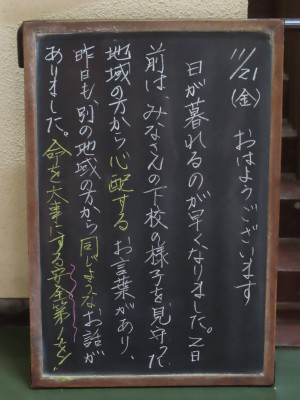 11/21(金) おはようございます
日が暮れるのが早くなりました。2日
前は、みなさんの下校の様子を見守った
地域の方から心配するお言葉があり、
昨日も、別の地域の方から同じようなお話が
ありました。命を大事にする安全第一を!